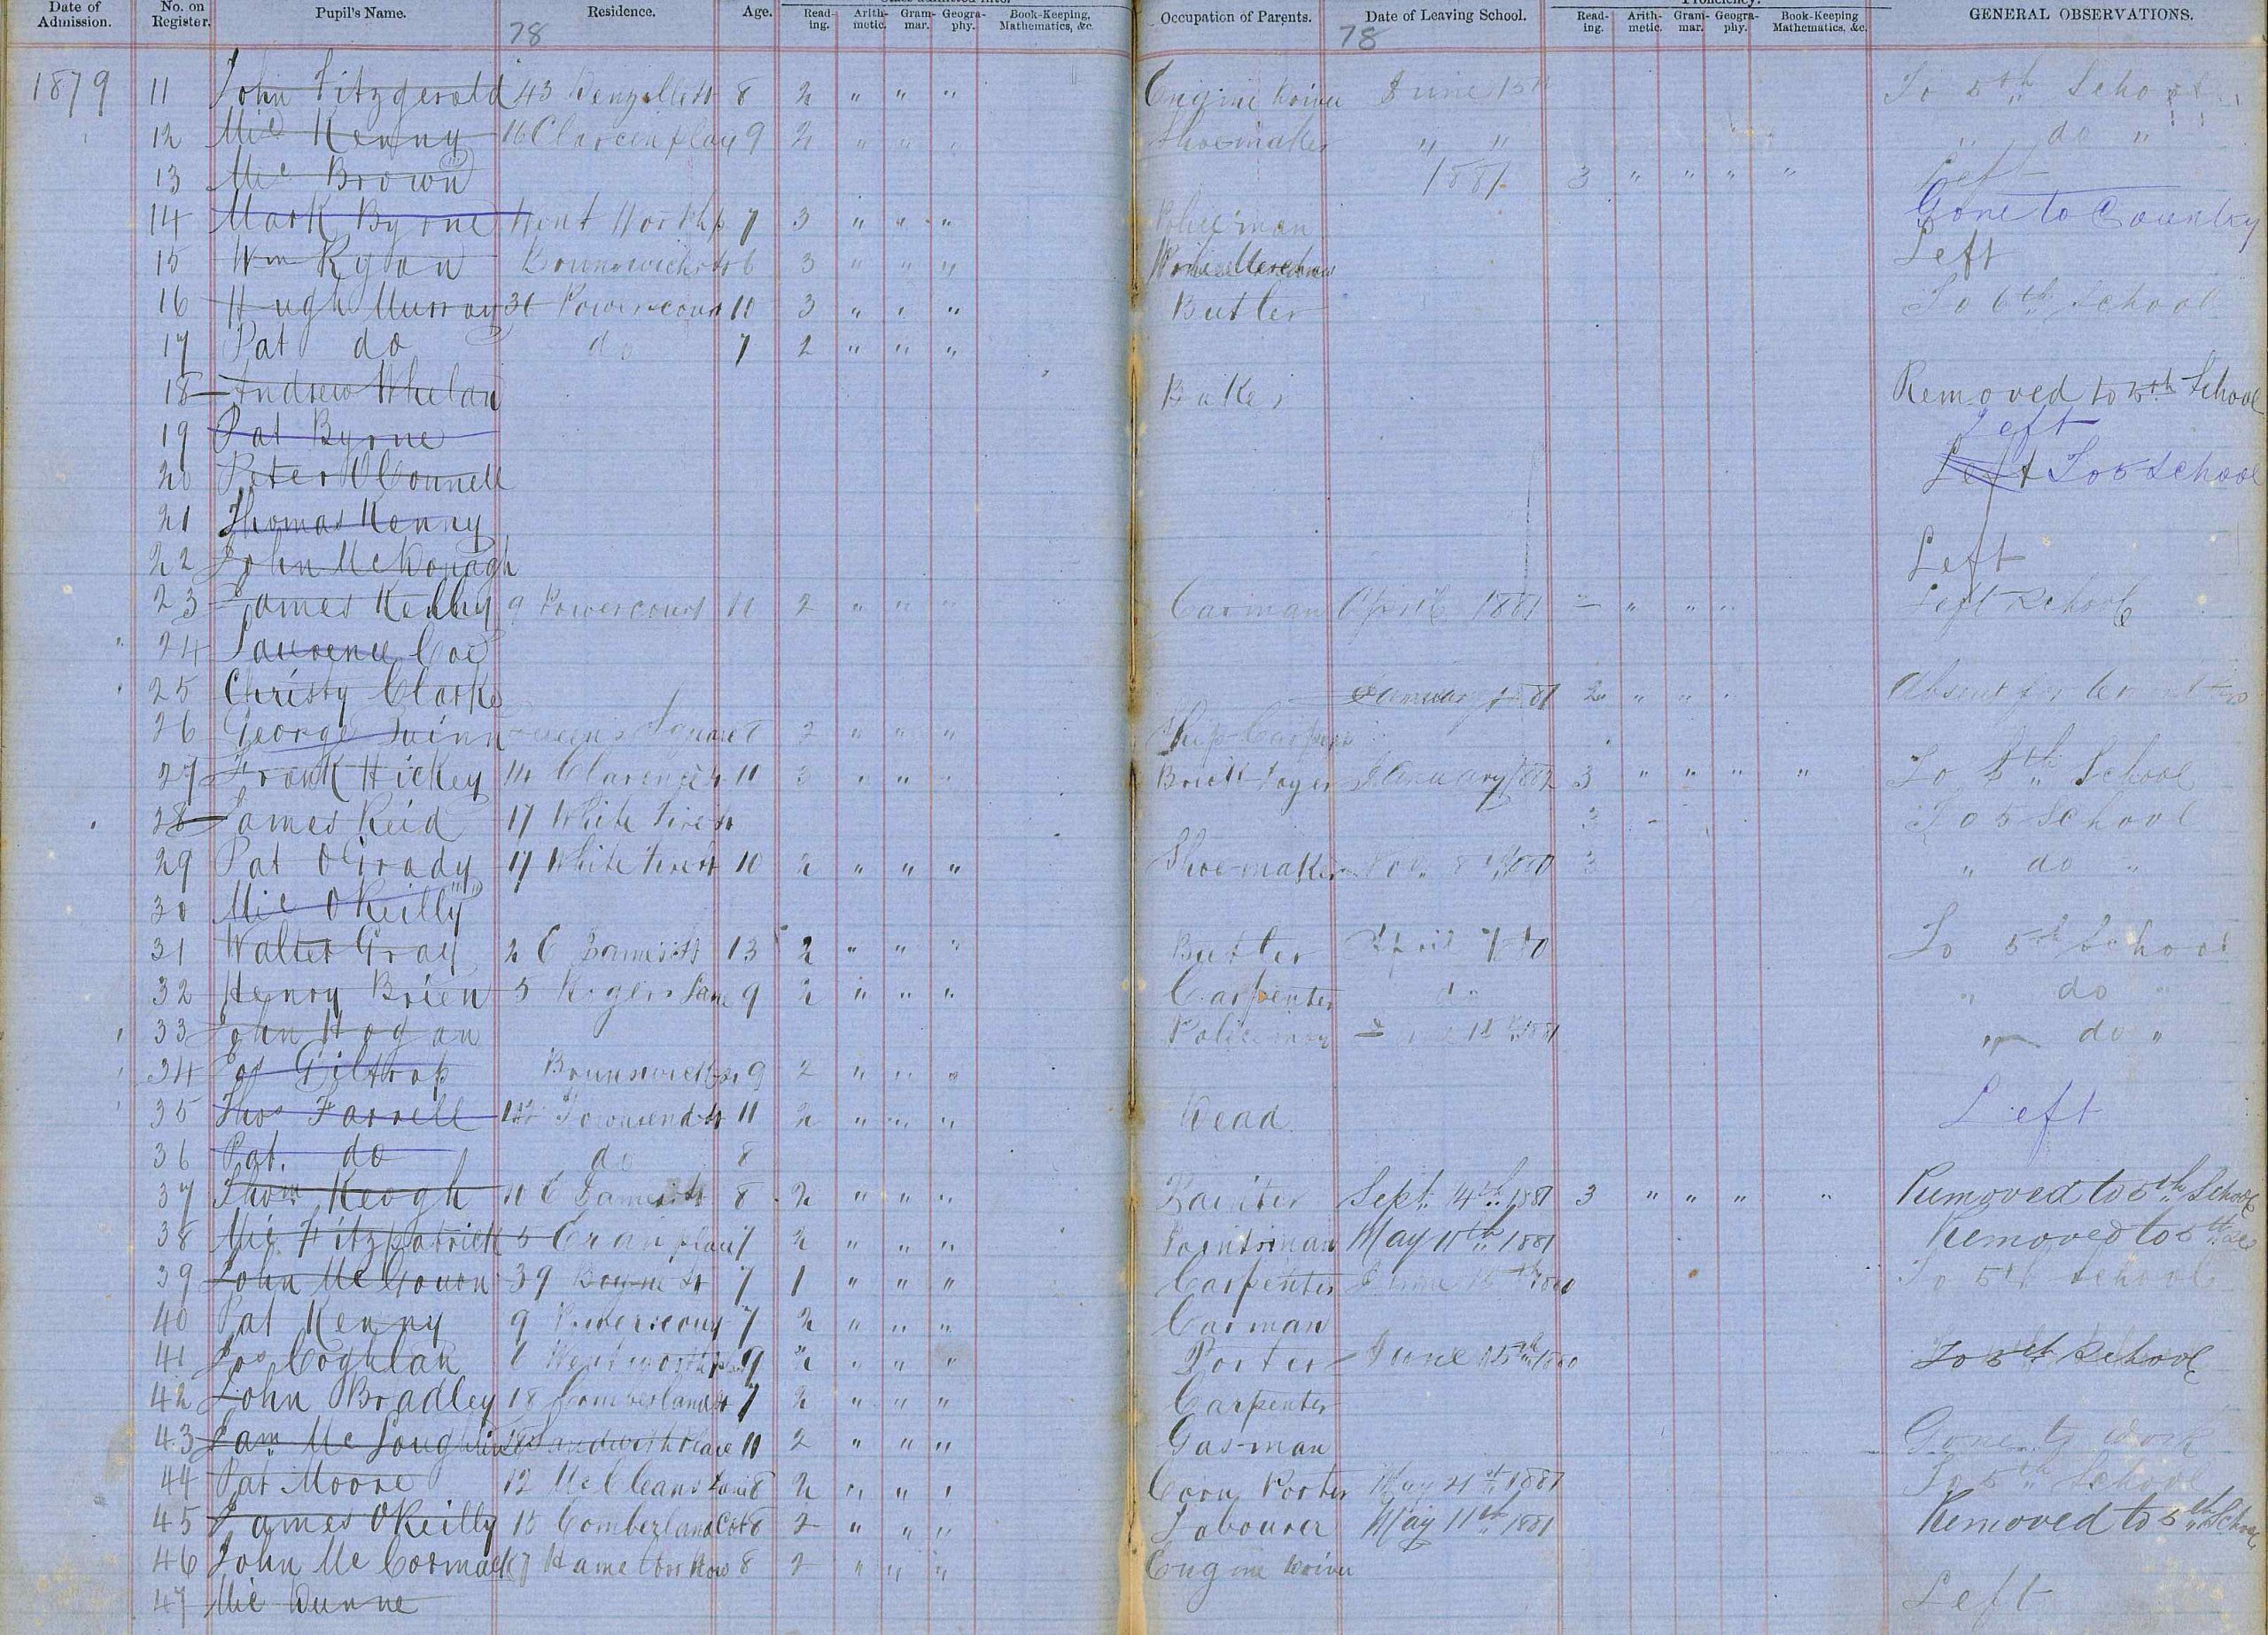 Date of Admission. No. on Register. Pupil's Name. Residence. Age. Read-ing. Arith-metic. Gram-mar. Geogra-phy. Book-Keeping, Mathematics, &c. Occupation of Parents. Date of Leaving School. Read-ing. Arith-metic. Gram-mar. Geogra-phy. Book-Keeping Mathematics, &c. GENERAL OBSERVATIONS.
78 78
1879 11 John Fitzgerald 43 Denzille St 8 2 " " " Engine Driver June 15th To 5th School
12 Mic Kenny 16 Clarence place 9 2 " " " Shoemaker " " " do "
13 Mic Brown 1881 3 " " " " Left
14 Mark Byrne Went Worth p 7 3 " " " Policeman Gone to Country
15 Wm Ryan Brunswick St 6 3 " " " Left
16 Hugh Murray 31 Powerscourt 10 3 " " " Butler To 6th School
17 Pat do do 7 2 " " "
18 Andrew Whelan Baker Removed to 5th School
19 Pat Byrne Left
20 Peter O'Connell Left To 5 School
21 Thomas Kenny
22 John McDonagh Left
23 James Kenny 9 Powerscourt 11 2 " " " Carman April 1881 2 " " " Left School
24 Laurence Coe
25 Christy Clarke January 81 2 " " " Absent for
26 George Quinn Queens Square 8 2 " " " Ship Carpen
27 Frank Hickey 14 Clarence St 11 3 " " " Brick-layer January 1882 3 " " " " To 5th School
28 James Reid 17 White Tire St 3 To 5 School
29 Pat O'Grady 17 White Tire St 10 2 " " " Shoe-maker Nov. 8th 1880 2 " do "
30 Mic O'Reilly
31 Walter Gray 2 C James St 13 2 " " " Butler April 1880 To 5th School
32 Henry Brien 5 Rogers Lane 9 2 " " " Carpenter do " do "
33 John Hogan Policeman 1881 " do "
34 Giltrap Brunswick St 9 2 " " "
35 Thos Farrell Townsend St 11 2 " " " Dead Left
36 Pat. do do 8
37 Thom Keogh 10 C James St 8 2 " " " Painter Sept. 4th 1881 3 " " " " Removed to 5th School
38 Mic Fitzpatrick 5 Eran place 7 2 " " " Pointsman May 11th 1881 Removed to 5th
39 John McGouon 39 Boyne St 7 1 " " " Carpenter June 15th 1880 To 5th School
40 Pat Kenny 9 Powerscourt 7 2 " " " Carman
41 Jos Coghlan 6 Wentworth p 9 2 " " " Porter June 15th 1880 To 5th School
42 John Bradley 18 Comberland St 7 2 " " " Carpenter
43 Jam McLoughlin Sandwith Place 11 2 " " " Gas-man Gone to work
44 Pat Moore 12 McCleans Lane 8 2 " " " Corn Porter May 21st 1881 To 5th School
45 James O'Reilly 15 Comberland Cot 8 2 " " " Labourer May 11th 1881 Removed to 5th School
46 John McCormack 7 Hamelton Row 8 2 " " " Engine Driver
47 Mic Dunne Left